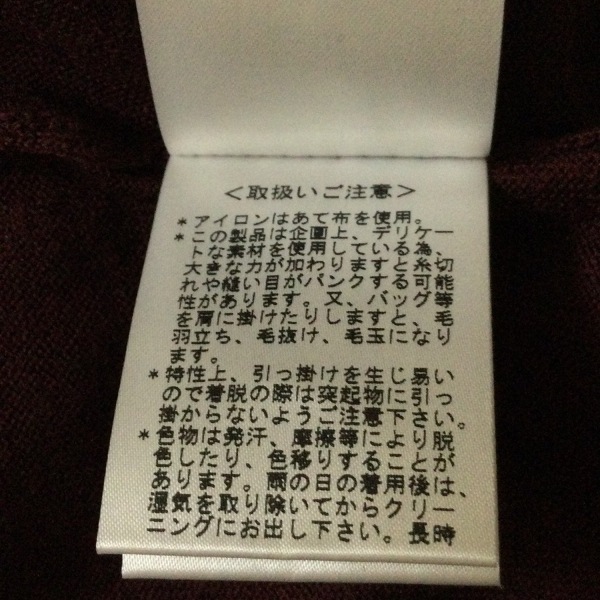 ＜取扱いご注意＞
＊アイロンはあて布を使用。
＊この製品は企画上、デリケー
トな素材を使用している為、
大きな力が加わりますと糸切
れや縫い目がパンクする可能
性があります。又、バッグ等
を肩に掛けたりしますと、毛
羽立ち、毛抜け、毛玉になり
ます。
＊特性上、引っ掛けを生じ易い
ので着脱の際は突起物に引っ
掛からないようご注意下さい。
＊色物は発汗、摩擦等により脱
色したり、色移りすることが
あります。雨の日の着用後は、
湿気を取り除いてからクリー
ニングにお出し下さい。長時